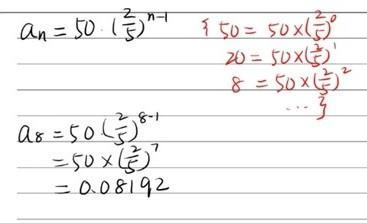 aₙ = 50 · (2/5)ⁿ⁻¹
{ 50 = 50 × (2/5)⁰
20 = 50 × (2/5)¹
8 = 50 × (2/5)²
... }
a₈ = 50 (2/5)⁸⁻¹
= 50 × (2/5)⁷
= 0.08192